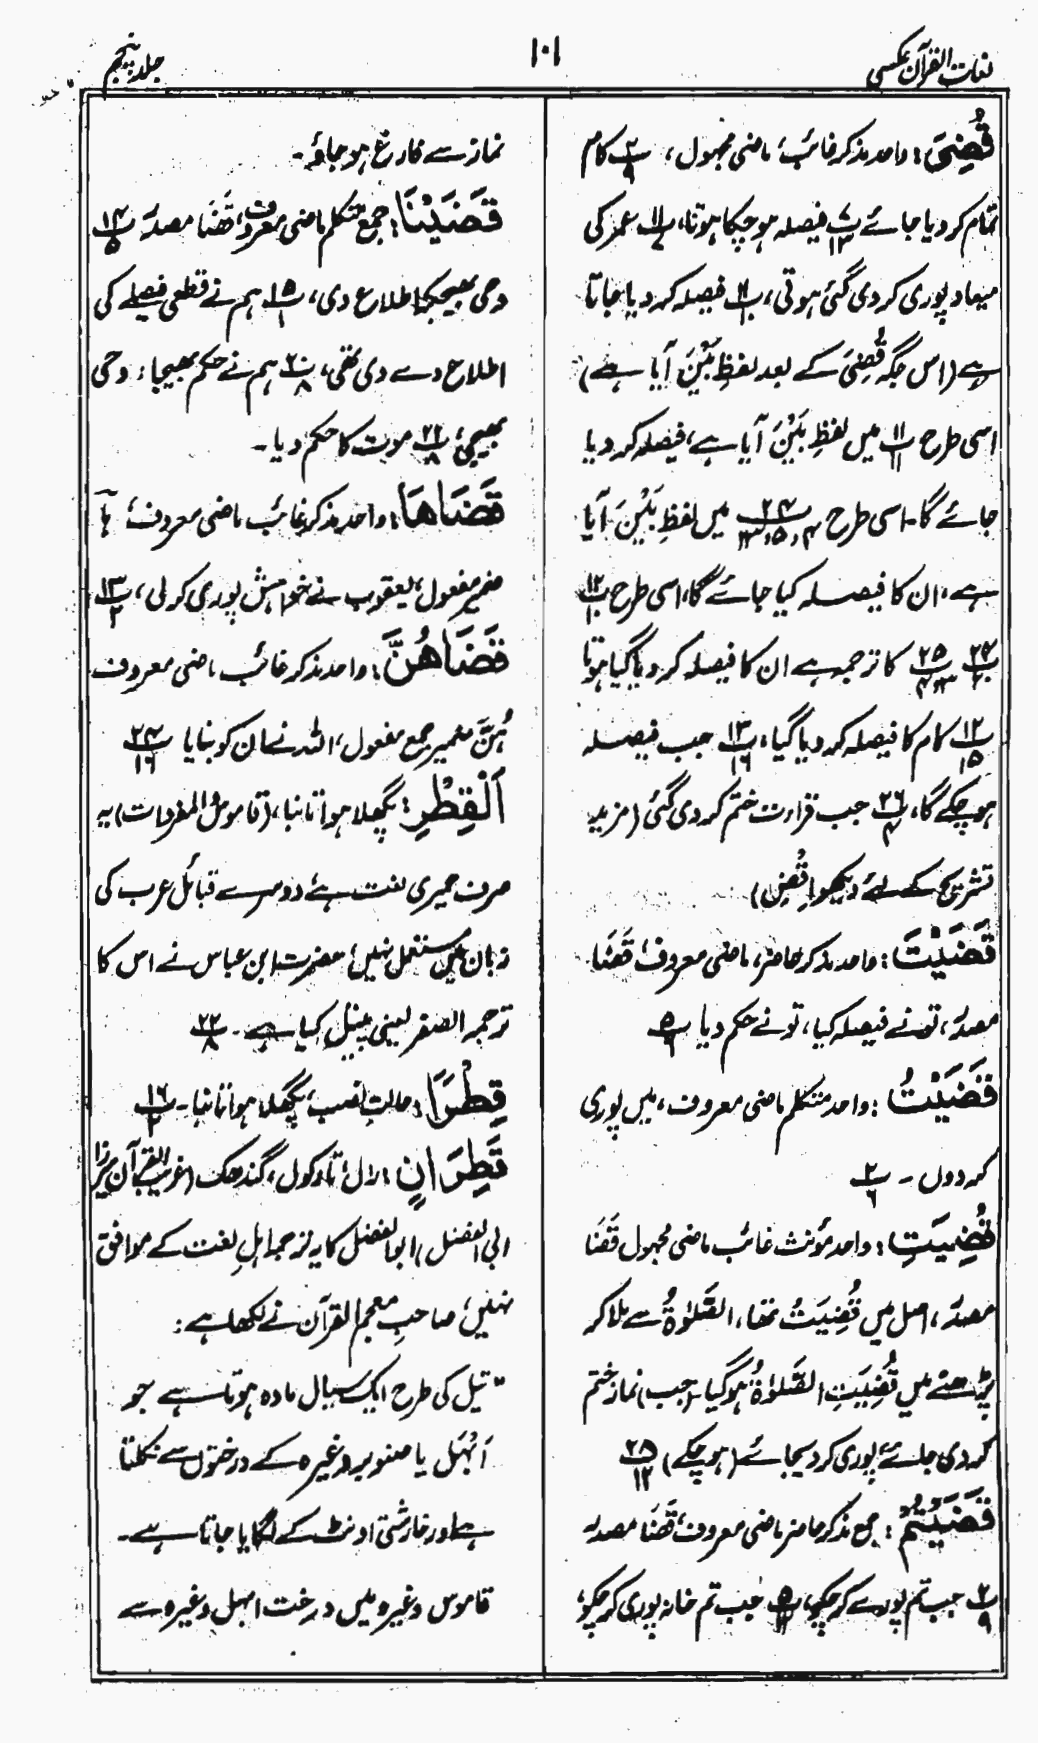 لغات القرآن عکسی
۱۰۱
جلد پنجم
قُضِیَ: واحد مذکر غائب، ماضی مجہول، پ۲/۹ کام
تمام کر دیا جائے پ۷/۱۳ فیصلہ ہو چکا ہوتا، پ۱۱/۷ عمر کی
میعاد پوری کر دی گئی ہوتی، پ۱۱ فیصلہ کر دیا جاتا
ہے (اس جگہ قُضِیَ کے بعد لفظِ بَیْنَ آیا ہے)
اسی طرح پ۱۱/۱۱ میں لفظِ بَیْنَ آیا ہے، فیصلہ کر دیا
جائے گا۔ اسی طرح پ۲۴/۴،۵،۱۳ میں لفظِ بَیْنَ آیا
ہے، ان کا فیصلہ کیا جائے گا، اسی طرح پ۱۲/۱۰
پ۲۴/۶ پ۲۵/۳،۴ کا ترجمہ ہے ان کا فیصلہ کر دیا گیا ہوتا
پ۱۲/۱۵ کام کا فیصلہ کر دیا گیا، پ۱۳/۱۶ جب فیصلہ
ہو چکے گا، پ۲۶/۴ جب قراءت ختم کر دی گئی (مزید
تشریح کے لئے دیکھو اِقْضِ)
قَضَیْتَ: واحد مذکر حاضر، ماضی معروف، قَضَا
مصدر، تو نے فیصلہ کیا، تو نے حکم دیا پ۵/۶
قَضَیْتُ: واحد متکلم ماضی معروف، میں پوری
کردوں۔ پ۲۰/۶
قُضِیَتِ: واحد مؤنث غائب ماضی مجہول قَضَا
مصدر، اصل میں قُضِیَتْ تھا، الصَّلٰوۃُ سے ملا کر
پڑھنے میں قُضِیَتِ الصَّلٰوۃُ ہو گیا۔ (جب) نماز ختم
کردی جائے، پوری کر دیجائے (ہو چکے) پ۲۸/۱۲
قَضَیْتُمْ: جمع مذکر حاضر ماضی معروف، قَضَا مصدر
پ۲/۹ جب تم پورے کر چکو، پ۵/۱۲ جب تم خانہ پوری کر چکو،
نماز سے فارغ ہو جاؤ۔
قَضَیْنَا: جمع متکلم ماضی معروف، قَضَا مصدر پ۱۴/۵
وحی بھیجکر اطلاع دی، پ۱۵/۱ ہم نے قطعی فیصلے کی
اطلاع دے دی تھی، پ۲۰/۸ ہم نے حکم بھیجا، وحی
بھیجی، پ۲۲/۸ موت کا حکم دیا۔
قَضَاهَا: واحد مذکر غائب ماضی معروف، ہا
ضمیر مفعول، یعقوب نے خواہش پوری کرلی، پ۱۳/۲
قَضَاهُنَّ: واحد مذکر غائب ماضی معروف
ہُنَّ ضمیر جمع مفعول، اللہ نے ان کو بنایا پ۲۴/۱۶
اَلْقِطْرِ: پگھلا ہوا تانبا، (قاموس والمفردات) یہ
صرف حمیری لغت ہے دوسرے قبائل عرب کی
زبان میں مستعمل نہیں، حضرت ابن عباس نے اس کا
ترجمہ الصفر یعنی پیتل کیا ہے۔ پ۲۲/۸
قِطْرًا: حالتِ نصب، پگھلا ہوا تانبا۔ پ۱۶/۲
قَطِرَانٍ: رال، تارکول، گندھک (غریب القرآن میرزا
ابی الفضل) ابو الفضل کا یہ ترجمہ اہلِ لغت کے موافق
نہیں، صاحبِ معجم القرآن نے لکھا ہے:
"تیل کی طرح ایک سیال مادہ ہوتا ہے جو
اَبْہَل یا صنوبر وغیرہ کے درختوں سے نکلتا
ہے اور خارشتی اونٹ کے لگایا جاتا ہے۔
قاموس وغیرہ میں درخت ابہل وغیرہ سے